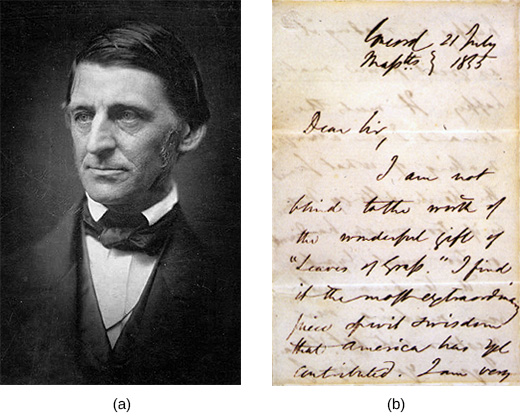 Concord 21 July
Masstts } 1855
Dear Sir,
I am not
blind to the worth of
the wonderful gift of
"Leaves of Grass." I find
it the most extraordinary
piece of wit & wisdom
that America has yet
contributed. I am very
(a)
(b)